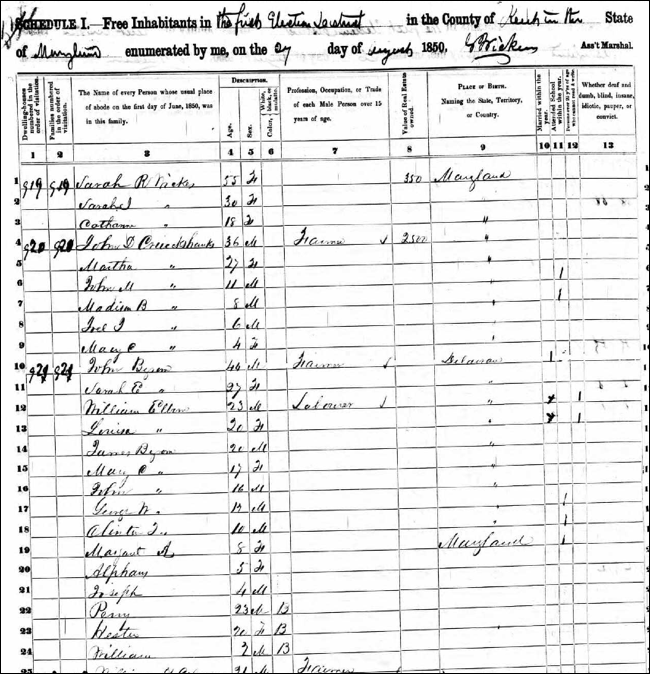 SCHEDULE I.—Free Inhabitants in the first Election District in the County of Kent in the State
of Maryland enumerated by me, on the 27 day of August 1850, Ass't Marshal.
Dwelling-houses numbered in the order of visitation.
Families numbered in order of visitation.
The Name of every Person whose usual place of abode on the first day of June, 1850, was in this family.
DESCRIPTION.
Age.
Sex.
White, black, or mulatto.
Color,
Profession, Occupation, or Trade of each Male Person over 15 years of age.
Value of Real Estate owned.
PLACE OF BIRTH.
Naming the State, Territory, or Country.
Married within the year.
Attended School within the year.
Whether deaf and dumb, blind, insane, idiotic, pauper, or convict.
1 2 3 4 5 6 7 8 9 10 11 12 13
1 919 919 Sarah R 55 F 350 Maryland
2 Sarah " 30 F
3 " 18 F "
4 920 920 John D Cruickshanks 36 M Farmer 2500 "
5 Martha " 27 F "
6 John M " 11 M " 1
7 Madison B " 8 M " 1
8 Joel " 6 M "
9 Mary C " 4 F "
10 921 921 John 44 M Farmer Delaware 1
11 Sarah E " 27 F "
12 William 23 M Laborer " 1
13 Louisa " 20 F " 1
14 James 20 M "
15 Mary C " 17 F "
16 John " 16 M "
17 George W. M " 1
18 10 M " 1
19 Margaret A 8 F Maryland 1
20 5 F "
21 Joseph 4 M "
22 Perry 23 M B "
23 Hester 20 F B "
24 William 2 M B "
25 31 M Farmer